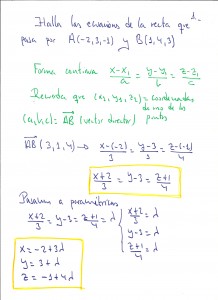 1.
Halla las ecuaciones de la recta que
pasa por A(-2,3,-1) y B(1,4,3)
Forma continua x-x₁/a = y-y₁/b = z-z₁/c
Recordar que (x₁, y₁, z₁) = coordenadas de uno de los puntos
(a,b,c) = AB (vector director)
AB (3,1,4) → x-(-2)/3 = y-3/1 = z-(-1)/4
x+2/3 = y-3 = z+1/4
Pasamos a paramétricas
x+2/3 = y-3 = z+1/4 = λ
x+2/3 = λ
y-3 = λ
z+1/4 = λ
x = -2+3λ
y = 3+λ
z = -1+4λ